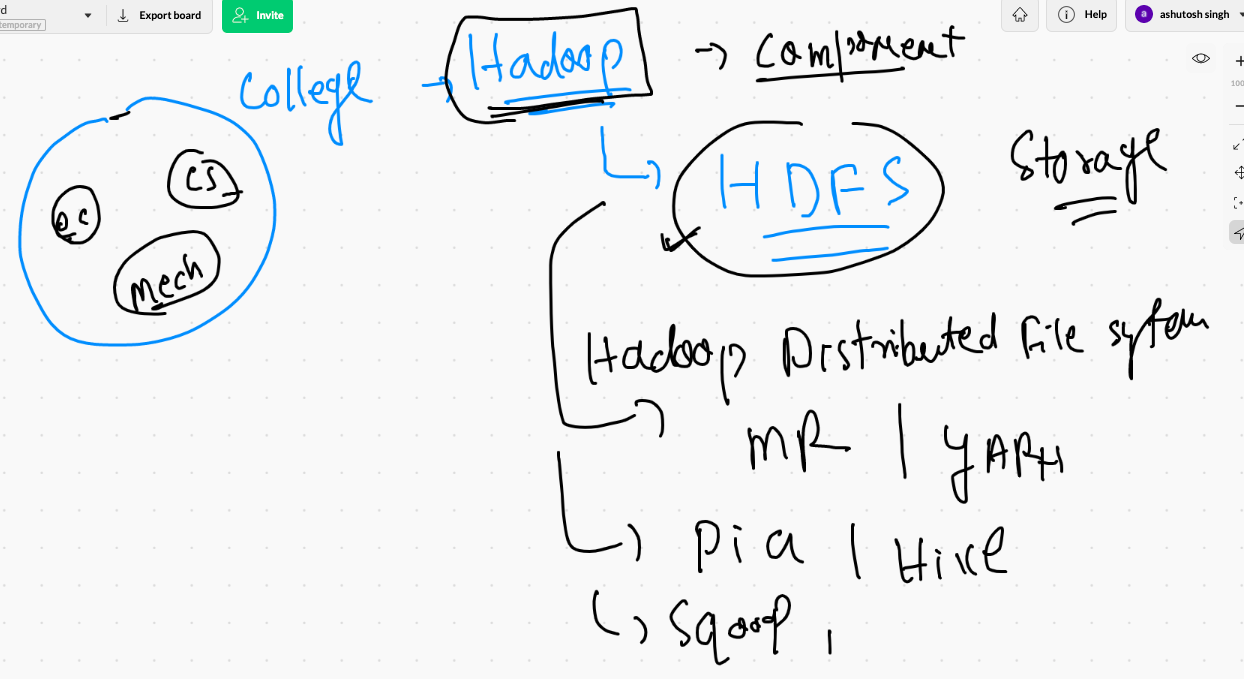 Export board
Invite
Help
a
ashutosh singh
temporary
100
College → Hadoop → Component
CS
Mech
HDFS
Storage
Hadoop Distributed File system
MR | YARN
Pig | Hive
Sqoop ,